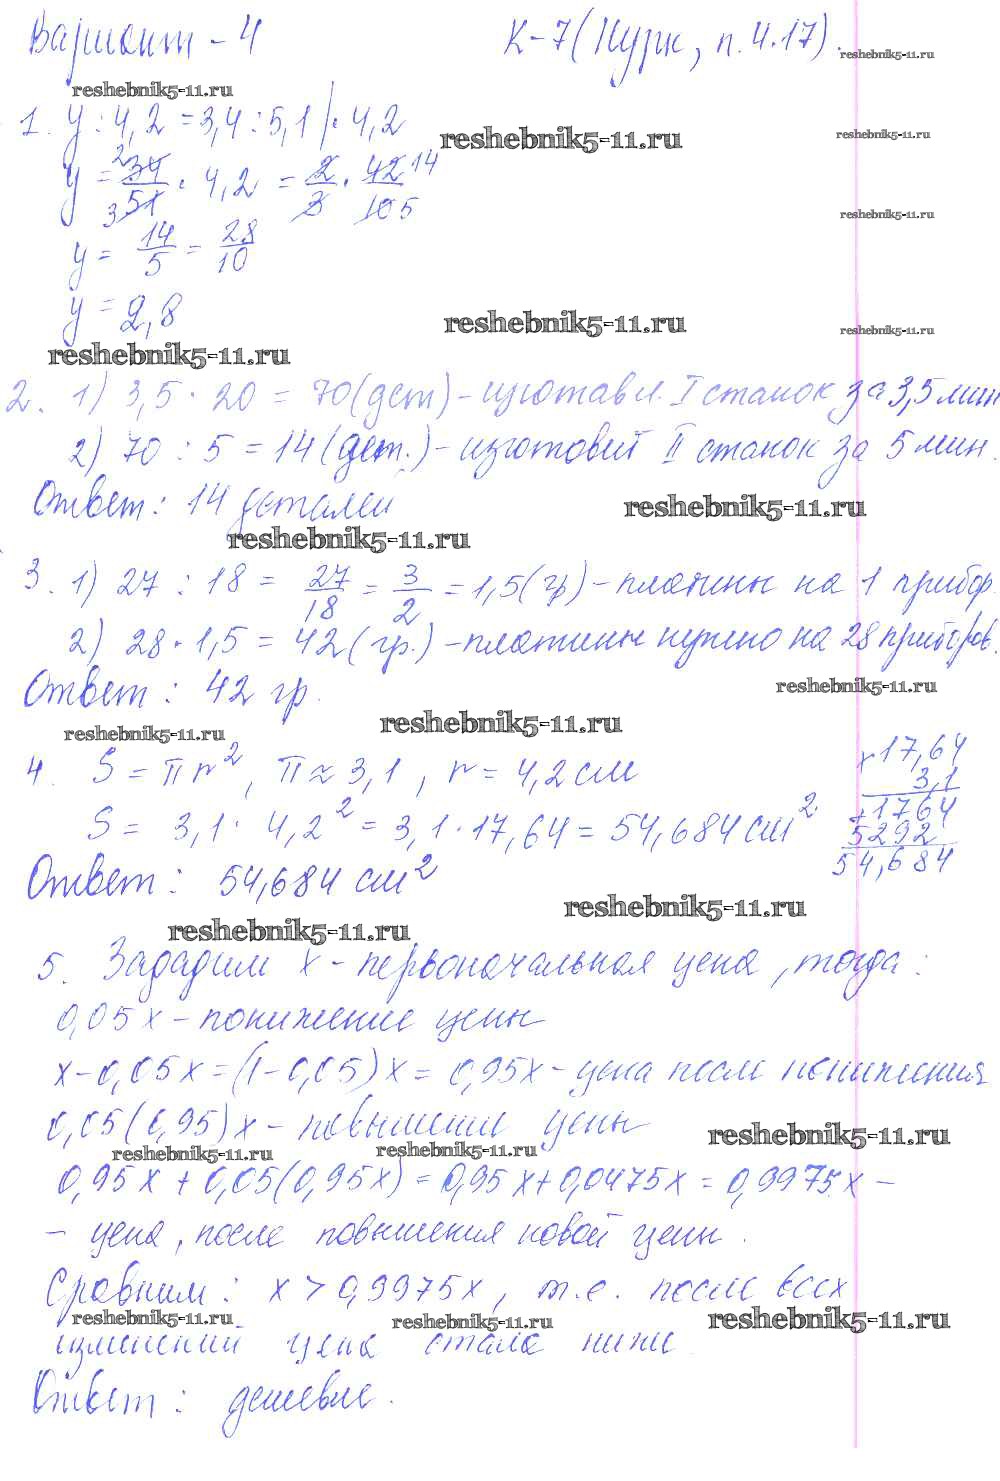 Вариант - 4 К-7 (Нурк, п. 4.17).
reshebnik5-11.ru
reshebnik5-11.ru
1. y : 4,2 = 3,4 : 5,1 | · 4,2
reshebnik5-11.ru
reshebnik5-11.ru
y = 2 34/3 51 · 4,2 = 2/3 · 42 14/10 5
reshebnik5-11.ru
y = 14/5 = 28/10
y = 2,8
reshebnik5-11.ru
reshebnik5-11.ru
reshebnik5-11.ru
2. 1) 3,5 · 20 = 70 (дет) - изготавл. I станок за 3,5 мин
2) 70 : 5 = 14 (дет.) - изготовит II станок за 5 мин.
Ответ: 14 деталей
reshebnik5-11.ru
reshebnik5-11.ru
3. 1) 27 : 18 = 27/18 = 3/2 = 1,5 (гр) - платины на 1 прибор.
2) 28 · 1,5 = 42 (гр.) - платины нужно на 28 приборов.
Ответ: 42 гр.
reshebnik5-11.ru
reshebnik5-11.ru
reshebnik5-11.ru
4. S = πr², π ≈ 3,1, r = 4,2 см
S = 3,1 · 4,2² = 3,1 · 17,64 = 54,684 см²
× 17,64
3,1
+ 1764
5292
54,684
Ответ: 54,684 см²
reshebnik5-11.ru
reshebnik5-11.ru
5. Зададим x - первоначальная цена, тогда:
0,05x - понижение цены
x - 0,05x = (1 - 0,05)x = 0,95x - цена после понижения
0,05(0,95)x - повышение цены
reshebnik5-11.ru
reshebnik5-11.ru
reshebnik5-11.ru
0,95x + 0,05(0,95x) = 0,95x + 0,0475x = 0,9975x -
- цена, после повышения новой цены.
Сравним: x > 0,9975x, т.е. после всех
reshebnik5-11.ru
reshebnik5-11.ru
reshebnik5-11.ru
изменений цена стала ниже
Ответ: дешевле.